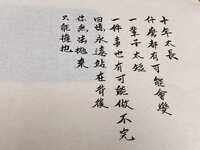 十年太長
什麼都有可能會變
一輩子太短
一件事也有可能做不完
回憶永遠站在背後
你無法拋棄
只能擁抱